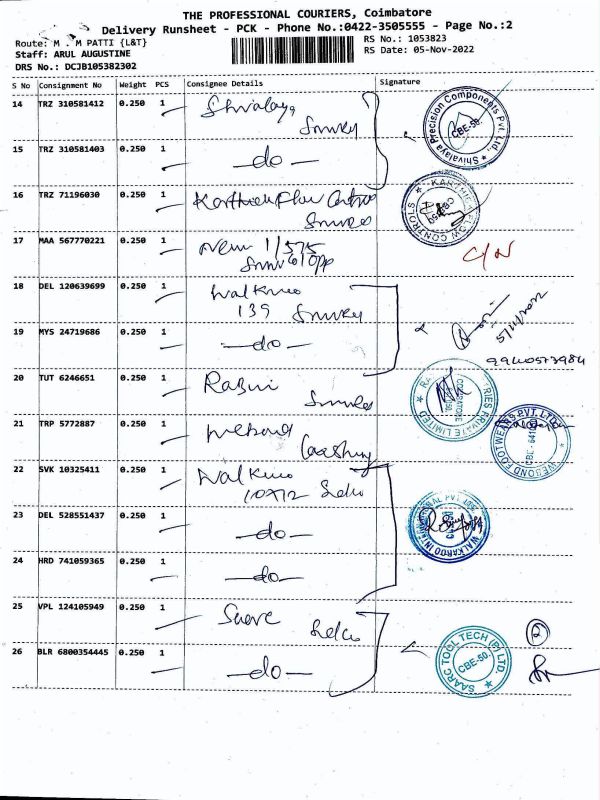 THE PROFESSIONAL COURIERS, Coimbatore
Delivery Runsheet - PCK - Phone No.:0422-3505555 - Page No.:2
Route: M . M PATTI {L&T}
RS No.: 1053823
Staff: ARUL AUGUSTINE
RS Date: 05-Nov-2022
DRS No.: DCJB105382302
S No Consignment No Weight PCS Consignee Details Signature
14 TRZ 310581412 0.250 1 Shivalaya
Shivalaya Precision Components Pvt. Ltd.,
CBE-50.
15 TRZ 310581403 0.250 1 —do—
16 TRZ 71196030 0.250 1
KARTHIE FLOW CONTROLS
17 MAA 567770221 0.250 1 1/575
C/N
18 DEL 120639699 0.250 1 Walkaroo
139
5/11/2022
19 MYS 24719686 0.250 1 —do—
9940573984
20 TUT 6246651 0.250 1
PRIVATE LIMITED
COIMBATORE
21 TRP 5772887 0.250 1
WEBOND FOOTWEARS PVT. LTD.
22 SVK 10325411 0.250 1 Walkaroo
10X12 Selco
23 DEL 528551437 0.250 1 —do—
WALKAROO INTERNATIONAL PVT LTD.
24 HRD 741059365 0.250 1 —do—
25 VPL 124105949 0.250 1
Selco
26 BLR 6800354445 0.250 1 —do—
SAARC TOOL TECH (P) LTD
CBE-50.